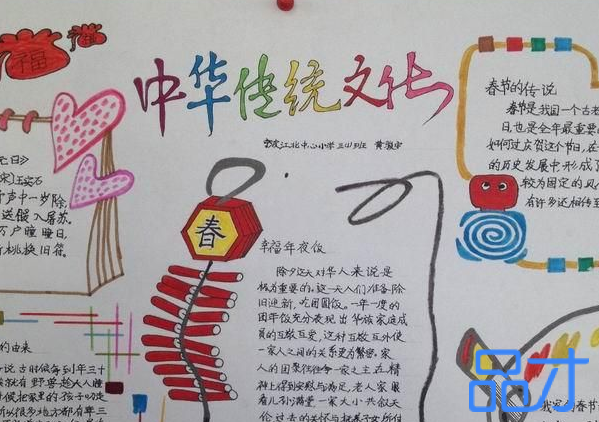 中华传统文化
江北中心小学
福
元日》
宋)王安石
声中一岁除,
送暖入屠苏。
万户曈曈日,
桃换旧符。
的由来
说古时候每到年三十
就有野兽趁人睡
候把家里的孩子吃
所以很多地方都有年三
春
幸福年夜饭
除夕这天对华人来说是
极为重要的。这一天人们准备除
旧迎新,吃团圆饭。一年一度的
团年饭充分表现出华族家庭成
员的互敬互爱,这种互敬互外使
一家人之间的关系更为紧密。家
人的团聚往往令一家之主在精
神上得到安慰与满足,老人家眼
看儿孙满堂,一家大小共叙天
伦,过去的关怀与抚养子女所付
春节的传说
春节是我国一个古
日,也是全年最重要的
如何过庆贺这个节日,在
的历史发展中形成了
较为固定的风
有许多还相传
我家的春节
品才